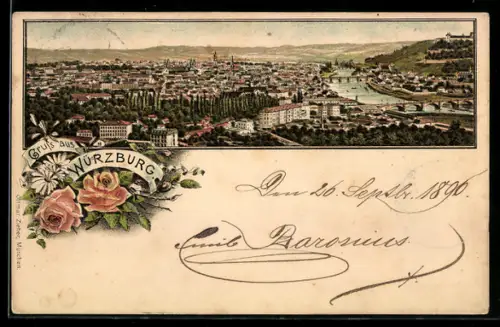 Gruß aus
WÜRZBURG
Den 26 Septbr. 1896
Emil Baronius
Ottmar Zieher, München.